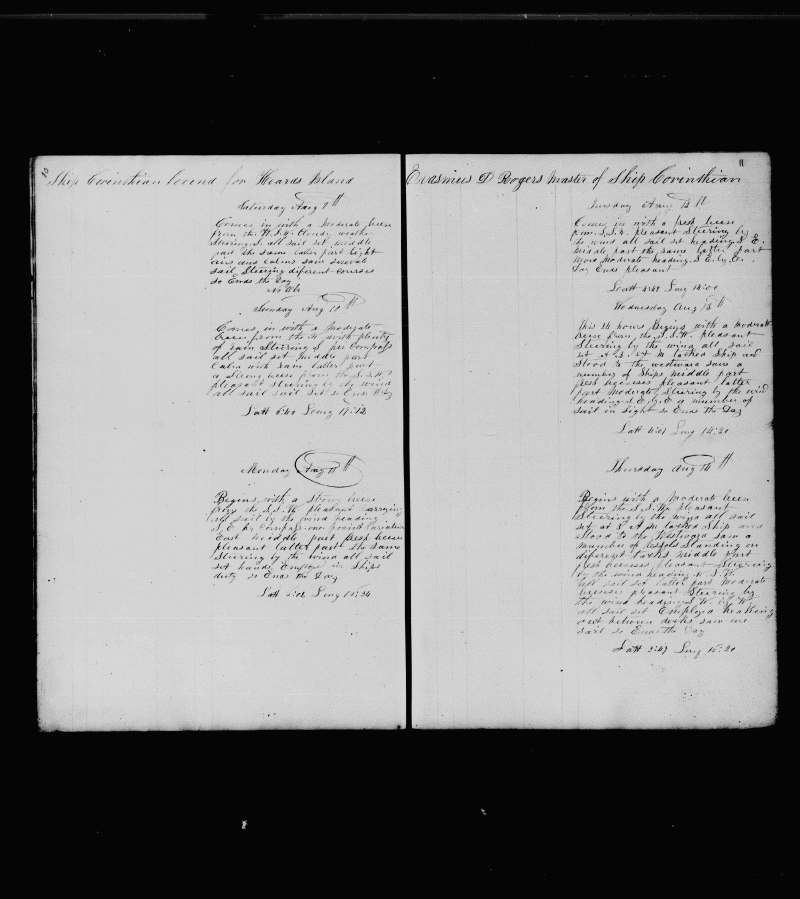 10
Ship Corinthian bound for Heards Island
Saturday Aug 9th
Comes in with a Moderate breeze
from the W.S.W. Cloudy weather
Steering S. all sail set middle
part the same latter part light
airs and calms saw several
sail Steering diferent courses
so Ends the Day
No Obs
Sunday Aug 10th
Comes in with a Moderate
breeze from the W with plenty
of rain Steering S per Compass
all sail set middle part
Calm with rain latter part
a Strong breeze from the S.S.W.
pleasant steering by the wind
all sail set so Ends
Latt 5:40 Long 17:12
Monday Aug 11th
Begins with a strong breeze
from the S.S.W pleasant carrying
all sail by the wind heading
S.E by Compass one point Variation
East middle part fresh breeze
pleasant latter part the same
Steering by the wind all sail
set hands Employed in Ships
duty so Ends the Day
Latt Long
11
Erasmus D Rogers Master of Ship Corinthian
Tuesday Aug
Comes in with a fresh breeze
from S.S.W. pleasant Steering by
the wind all sail set heading S.E.
middle part the same latter part
More Moderate heading S.E. by E.
Day Ends pleasant
Latt Long 14:00
Wednesday Aug 13th
This 24 hours Begins with a moderate
breeze from the S.S.W. pleasant
Steering by the wind all sail
set at M tacked Ship and
Stood to the westward saw a
number of Ships middle part
fresh breezes pleasant latter
part moderate Steering by the wind
heading S.E. by E a number of
sail in sight so Ends the Day
Latt Long 14:30
Thursday Aug 14th
Begins with a Moderate breeze
from the S.S.W pleasant
Steering by the wind all sail
set at A M tacked Ship and
stood to the Westward saw a
number of vessels standing on
diferent tacks middle Part
fresh breezes pleasant Steering
by the wind heading W.S.W.
all sail set latter part Moderate
breezes pleasant Steering by
the wind heading S.W. by W.
all sail set Employed
out between decks saw one
sail so Ends the Day
Latt Long